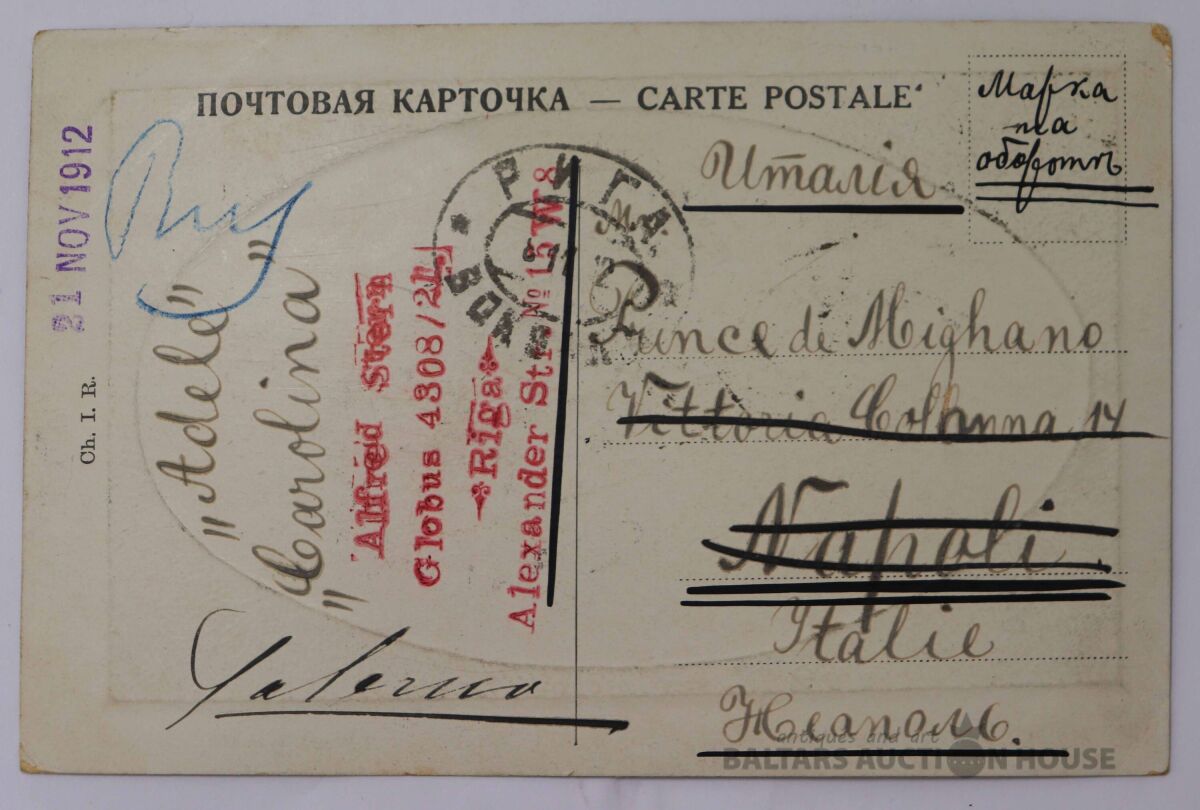 ПОЧТОВАЯ КАРТОЧКА — CARTE POSTALE
Марка
на
оборотѣ
Италія
Prince di Mighano
Vittoria Colonna 14
Napoli
Italie
Неаполь.
РИГА
ВОКЗАЛ
31 NOV 1912
Ch. I. R.
"Adele"
"Carolina"
Alfred Stern
Globus 4308/2L
Riga
Alexander Str. № 15 W 8
Palermo
antiques and art
BALTARS AUCTION HOUSE